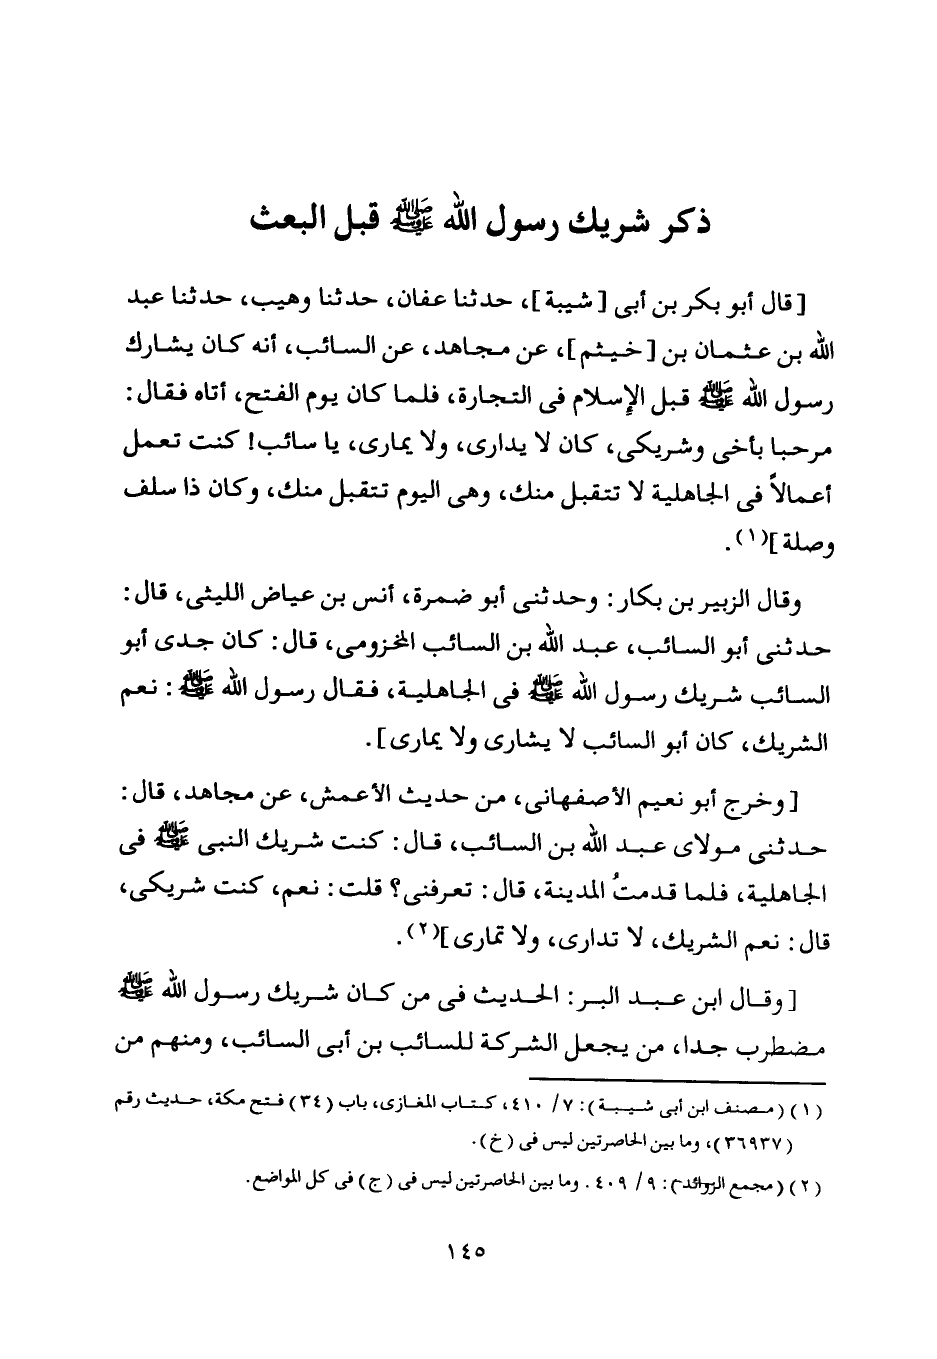 ذكر شريك رسول الله ﷺ قبل البعث
[قال أبو بكر بن أبى [شيبة]، حدثنا عفان، حدثنا وهيب، حدثنا عبد
الله بن عثمان بن [خيثم]، عن مجاهد، عن السائب، أنه كان يشارك
رسول الله ﷺ قبل الإسلام فى التجارة، فلما كان يوم الفتح، أتاه فقال:
مرحبا بأخى وشريكى، كان لا يدارى، ولا يمارى، يا سائب! كنت تعمل
أعمالاً فى الجاهلية لا تتقبل منك، وهى اليوم تتقبل منك، وكان ذا سلف
وصلة](١).
وقال الزبير بن بكار: وحدثنى أبو ضمرة، أنس بن عياض الليثى، قال:
حدثنى أبو السائب، عبد الله بن السائب المخزومى، قال: كان جدى أبو
السائب شريك رسول الله ﷺ فى الجاهلية، فقال رسول الله ﷺ: نعم
الشريك، كان أبو السائب لا يشارى ولا يمارى].
[وخرج أبو نعيم الأصفهانى، من حديث الأعمش، عن مجاهد، قال:
حدثنى مولاى عبد الله بن السائب، قال: كنت شريك النبى ﷺ فى
الجاهلية، فلما قدمتُ المدينة، قال: تعرفنى؟ قلت: نعم، كنت شريكى،
قال: نعم الشريك، لا تدارى، ولا تمارى](٢).
[وقال ابن عبد البر: الحديث فى من كان شريك رسول الله ﷺ
مضطرب جدا، من يجعل الشركة للسائب بن أبى السائب، ومنهم من
(١) (مصنف ابن أبى شيبة): ٧/ ٤١٠، كتاب المغازى، باب (٣٤) فتح مكة، حديث رقم
(٣٦٩٣٧)، وما بين الحاصرتين ليس فى (خ).
(٢) (مجمع الزوائد): ٩/ ٤٠٩. وما بين الحاصرتين ليس فى (ج) فى كل المواضع.
١٤٥